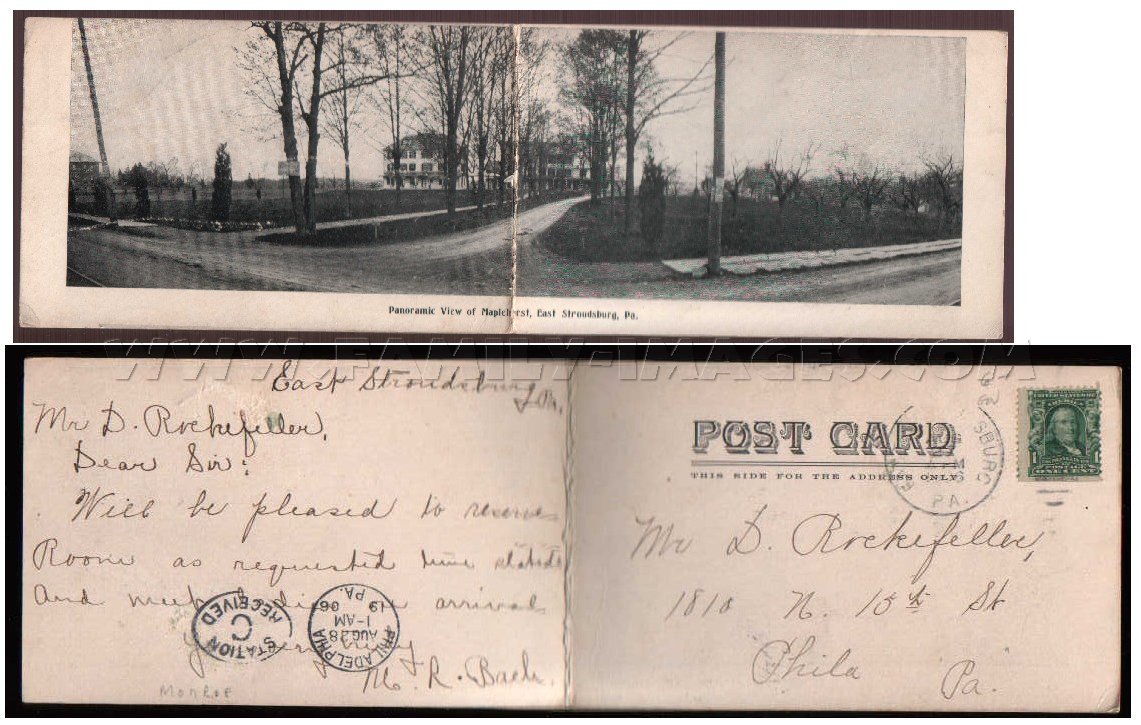 Panoramic View of Maplehurst, East Stroudsburg, Pa.
WWW.FAMILY-IMAGES.COM
East Stroudsburg
Pa.
Mr D. Rockefeller,
Dear Sir:
Will be pleased to reserve
Room as requested time stated
And meet arrival
M. R. Bach.
Monroe
STATION C RECEIVED
PHILADELPHIA PA.
AUG 28
1-AM
19 06
POST CARD
THIS SIDE FOR THE ADDRESS ONLY
SBURG
PA.
UNITED STATES OF
AMERICA
1 1
POSTAGE
ONE CENT
Mr D. Rockefeller,
1810 N. 15th St
Phila
Pa.